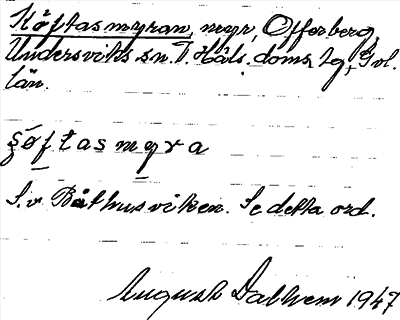 Köftasmyran, myr, Offerberg,
Undersviks sn. V. Häls. doms. lg, Gvl.
län.
ʂöftasmyra
S.v. Båthusviken. Se detta ord.
August Dalhem 1947